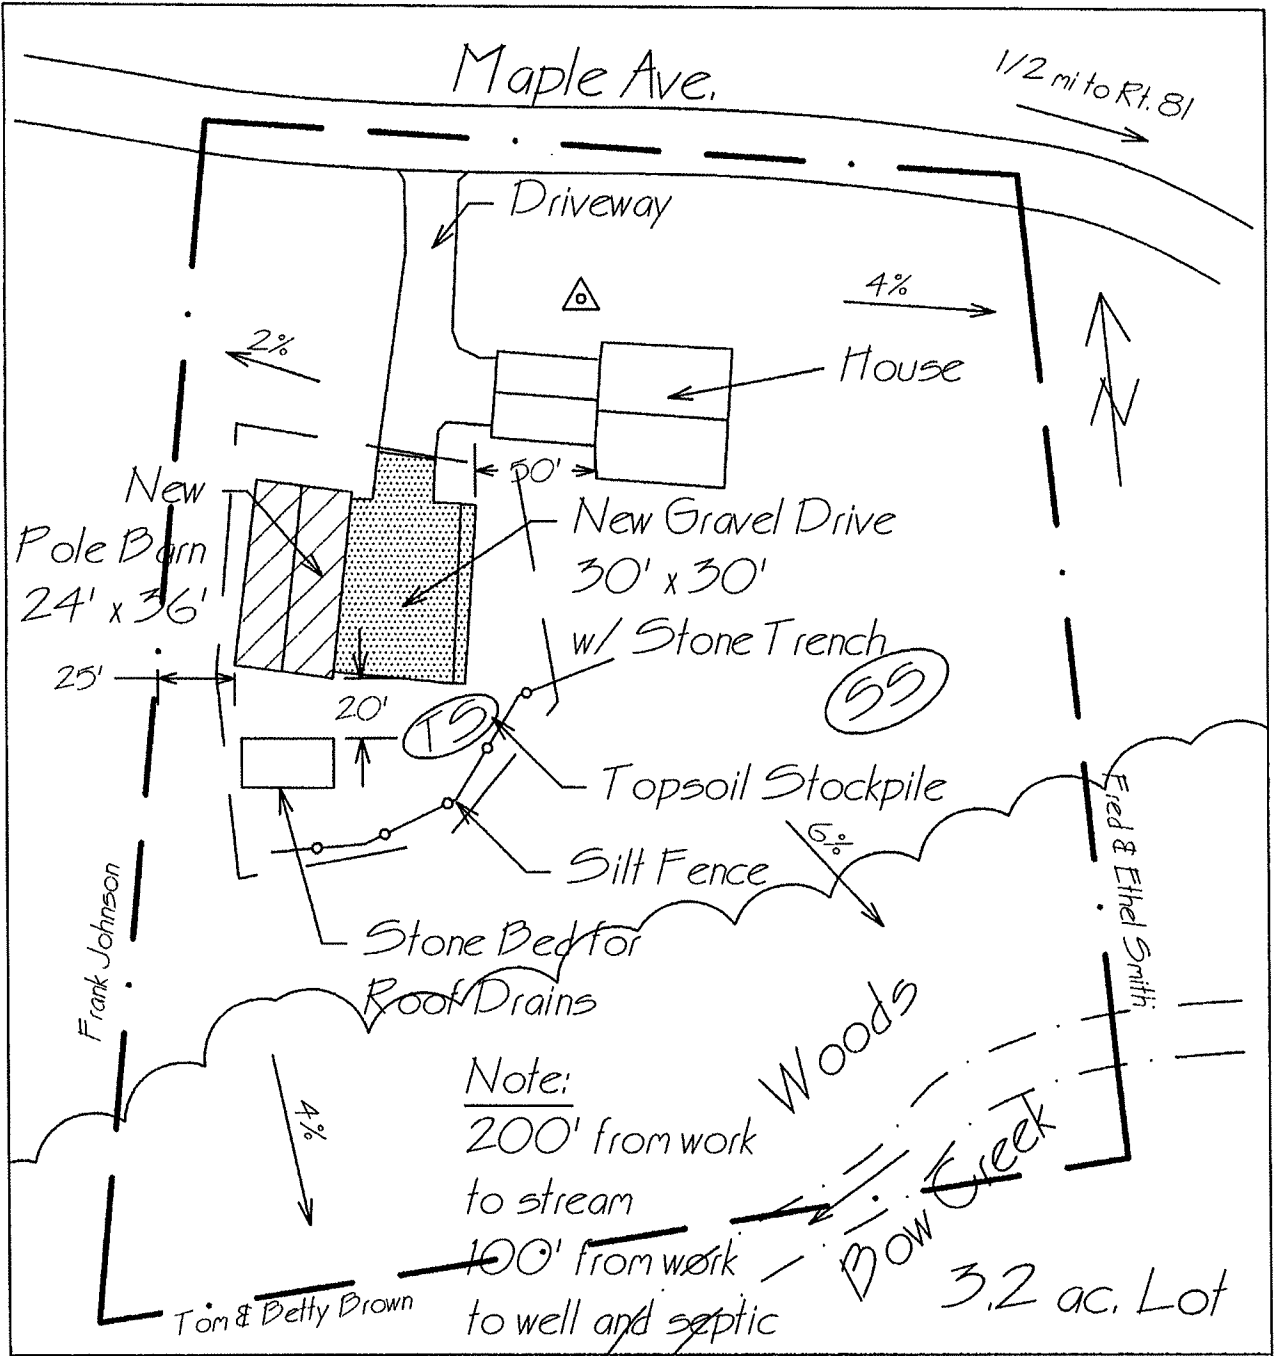 Maple Ave.
1/2 mi to Rt. 81
Driveway
4%
2%
House
50'
New
Pole Barn
24' x 36'
New Gravel Drive
30' x 30'
w/ Stone Trench
N
25'
20'
TS
SS
Topsoil Stockpile
6%
Silt Fence
Fred & Ethel Smith
Frank Johnson
Stone Bed for
Roof Drains
Woods
4%
Note:
200' from work
to stream
100' from work
to well and septic
Bow Creek
Tom & Betty Brown
3.2 ac. Lot